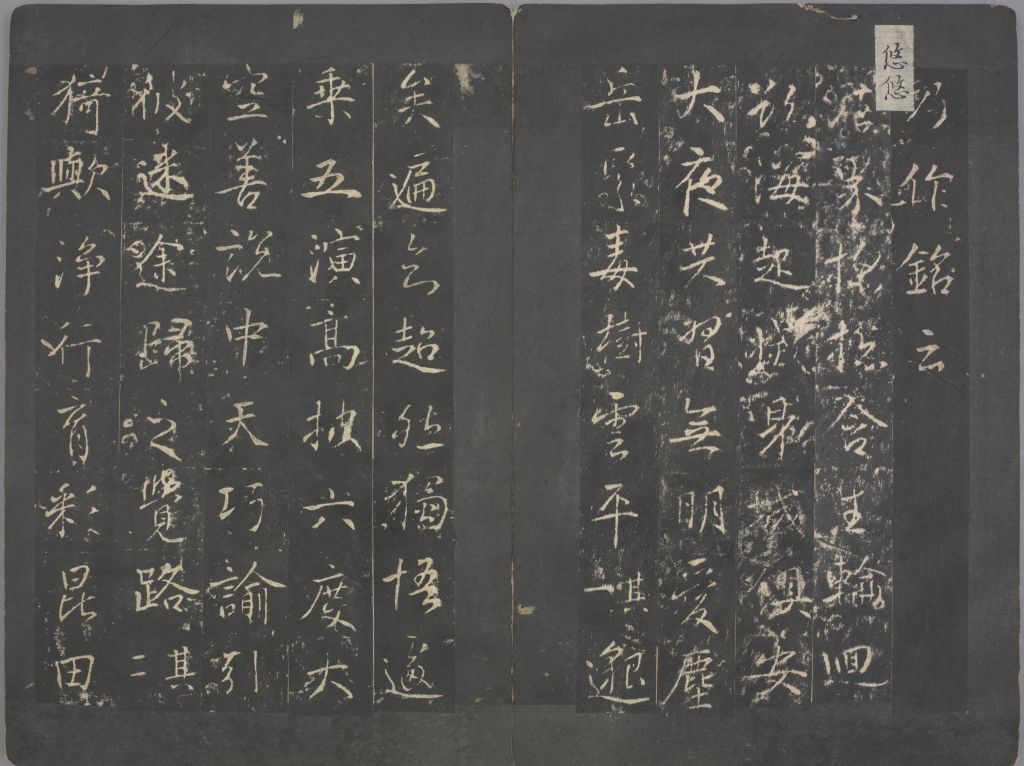 悠悠
乃作銘云
苦界恍惚含生輪迴
欲海起滅城俱安
大夜共習無明愛塵
岳聚毒樹雲平其一邈
矣遍知超然獨悟
乘五演高披六度大
空善說中天巧諭引
彼迷途歸之覺路其二
猗歟淨行育彩昆田